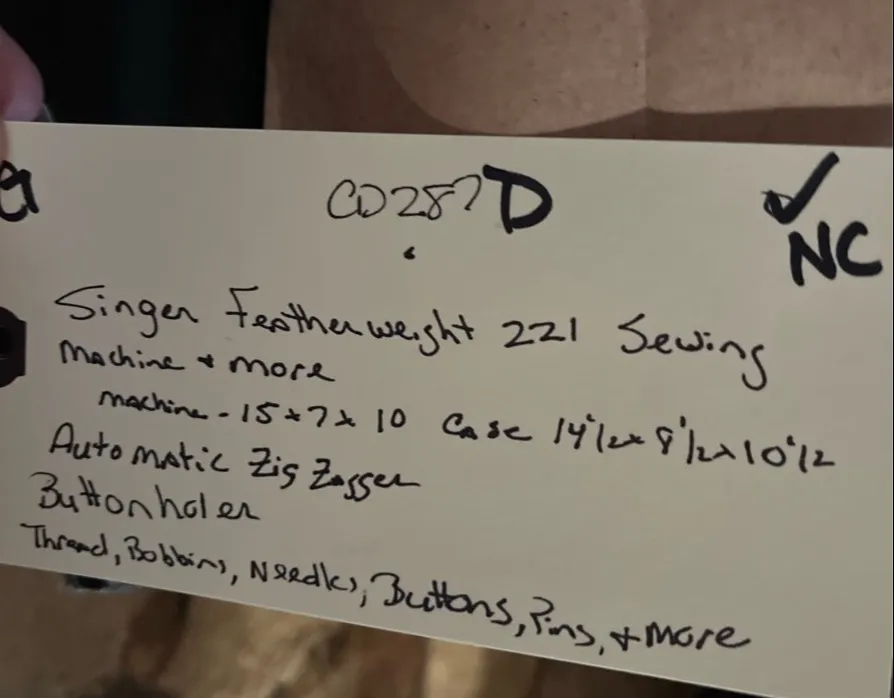 CD287D
✓
NC
Singer Featherweight 221 Sewing
Machine + more
Machine - 15 x 7 x 10 Case 14 1/2 x 8 1/2 x 10 1/2
Automatic Zig Zagger
Buttonholer
Thread, Bobbins, Needles, Buttons, Pins, + more